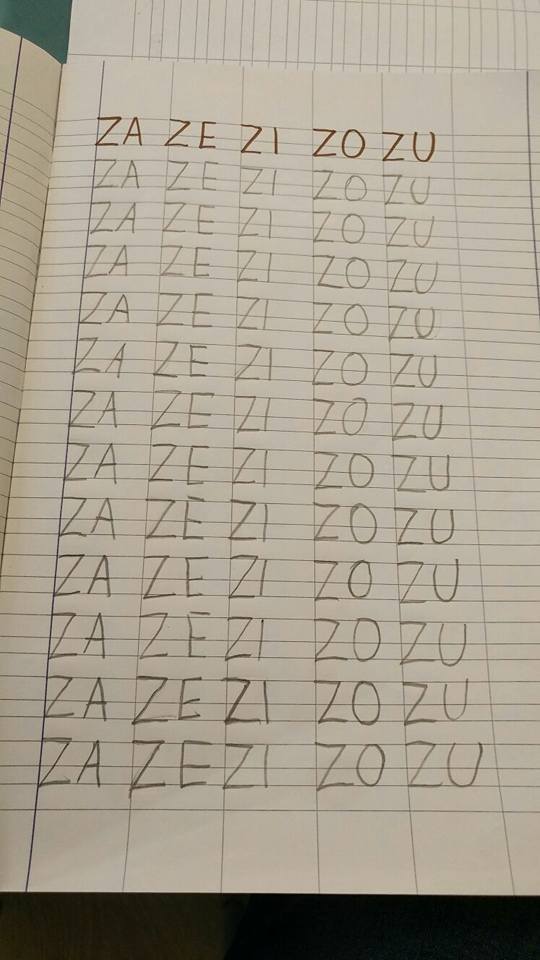 ZA ZE ZI ZO ZU
ZA ZE ZI ZO ZU
ZA ZE ZI ZO ZU
ZA ZE ZI ZO ZU
ZA ZE ZI ZO ZU
ZA ZE ZI ZO ZU
ZA ZE ZI ZO ZU
ZA ZE ZI ZO ZU
ZA ZE ZI ZO ZU
ZA ZE ZI ZO ZU
ZA ZE ZI ZO ZU
ZA ZE ZI ZO ZU
ZA ZE ZI ZO ZU